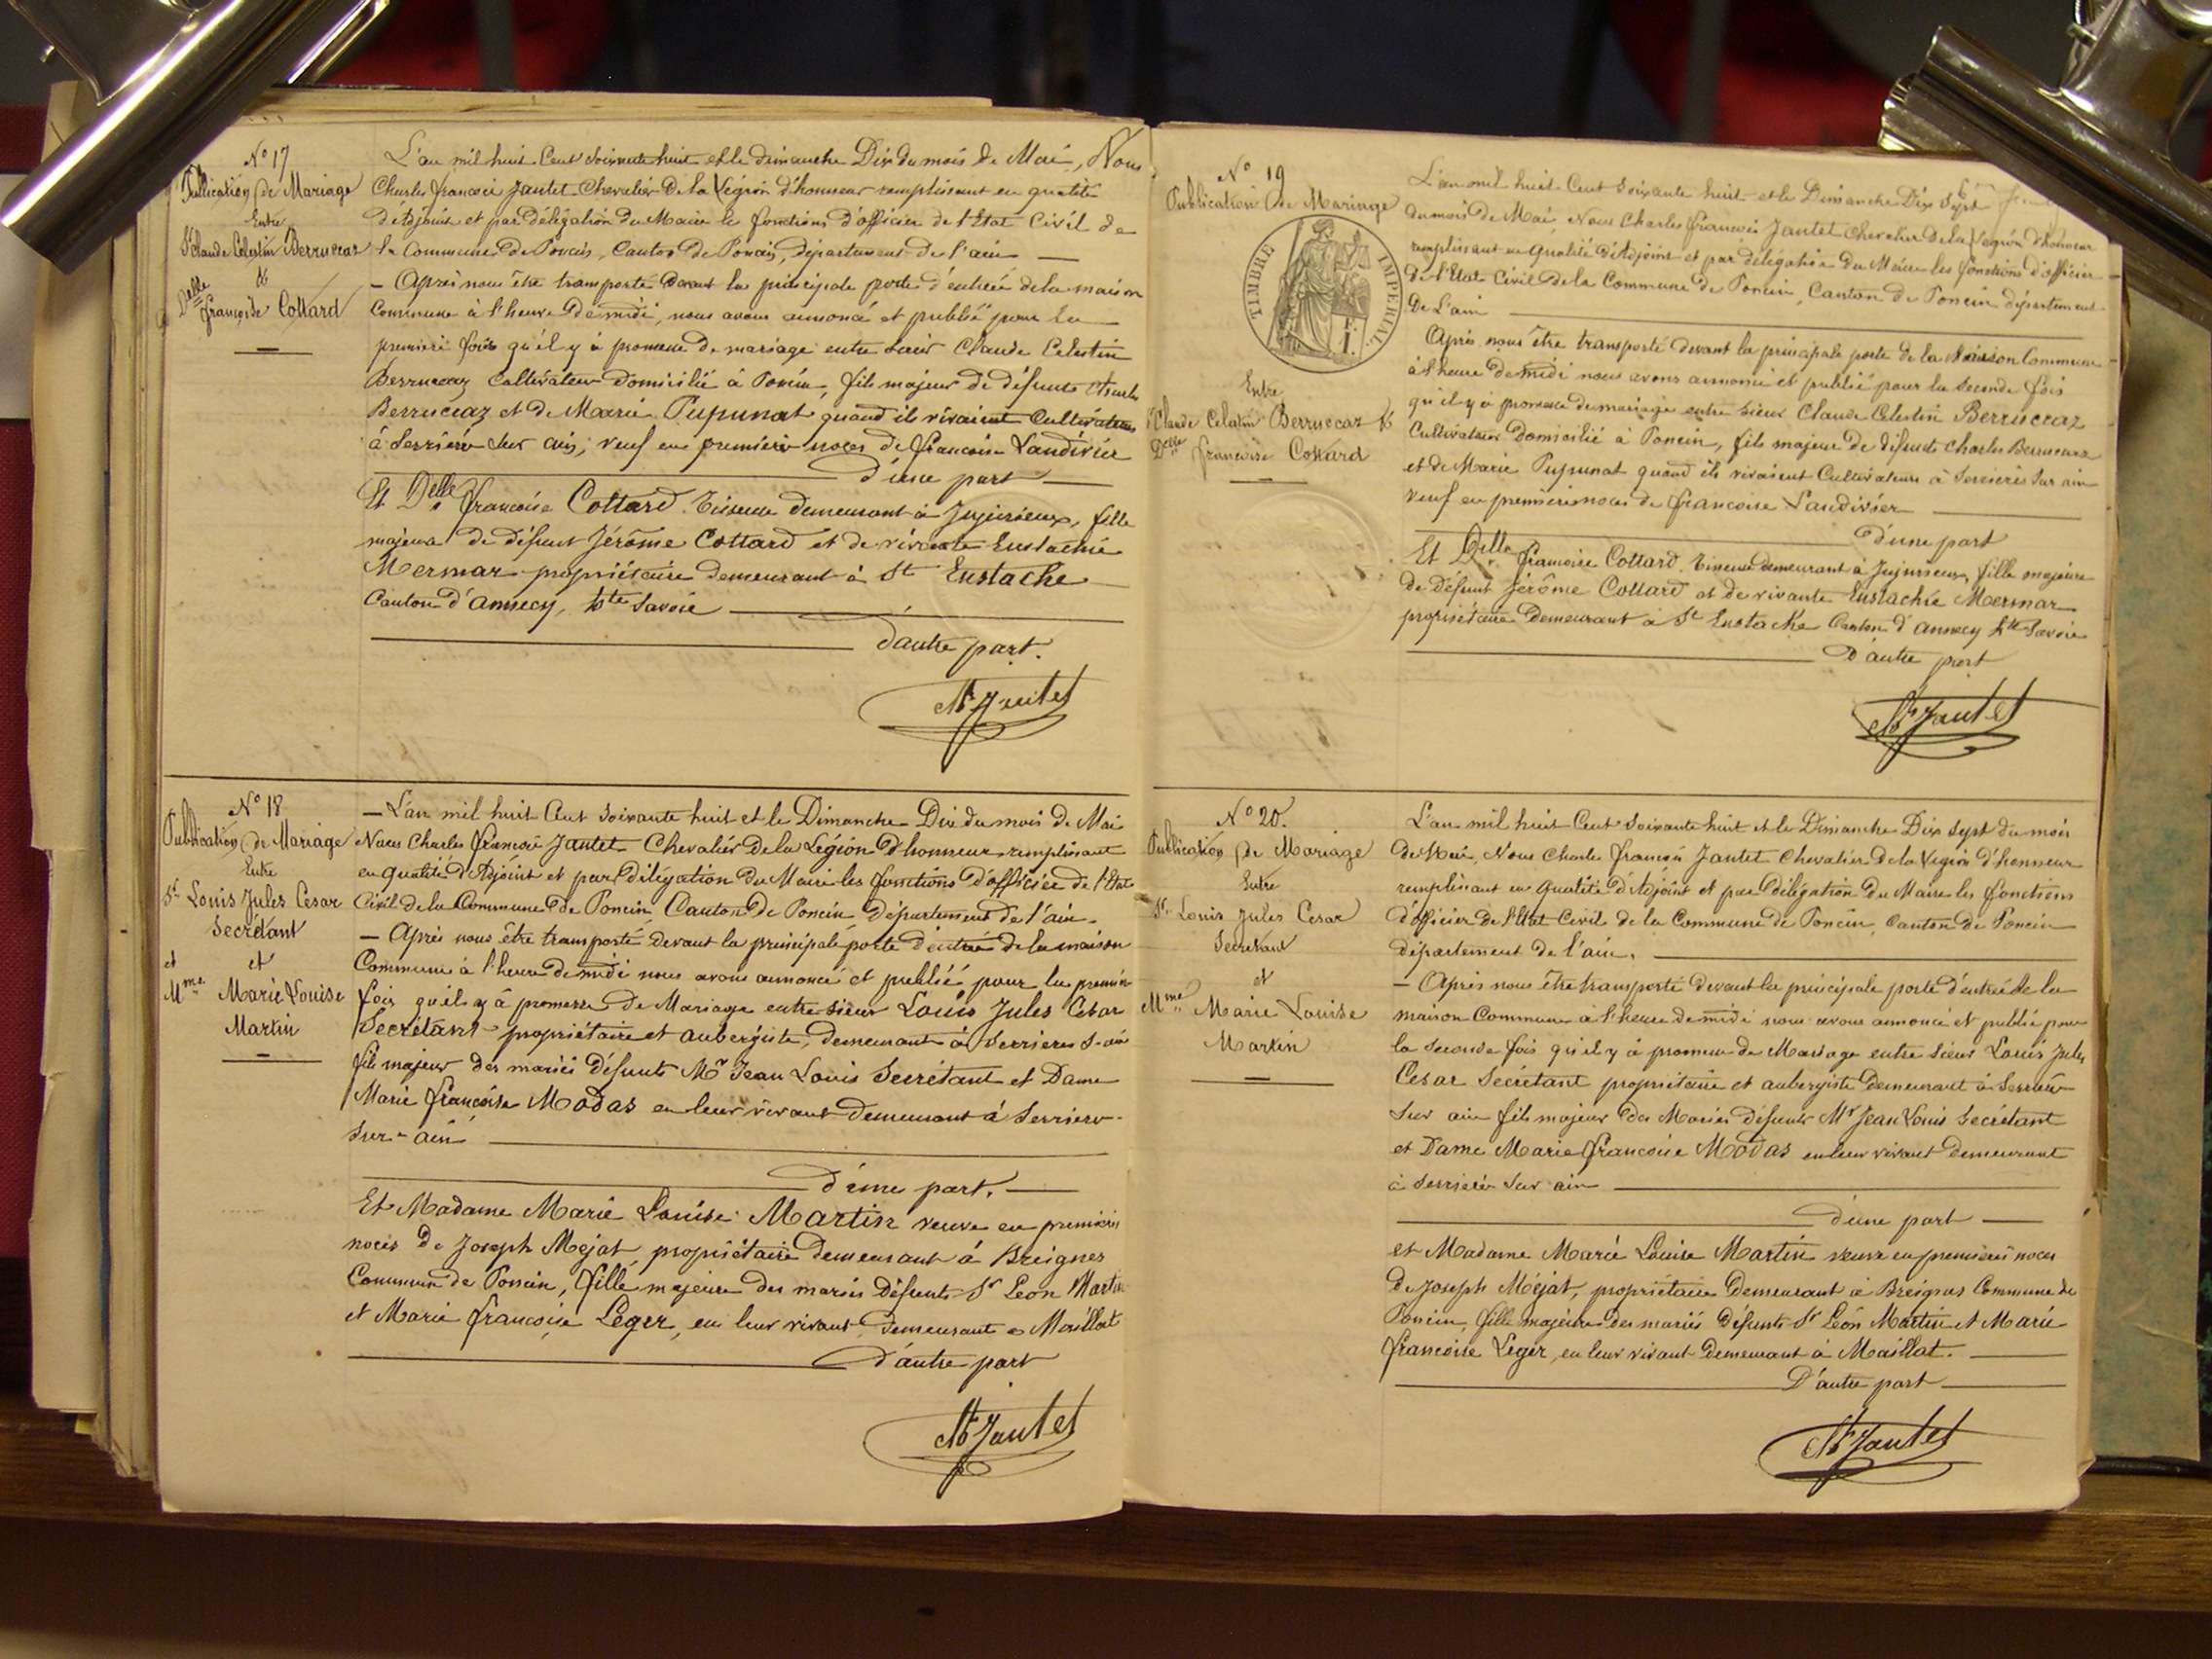 N° 17
Publication de Mariage
Entre
Sr Claude Celestin Berruccaz
&
Delle françoise Collard
L'an mil huit Cent soixante huit et le dimanche Dix du mois de Mai, Nous
Charles françois Jantet Chevalier De la Légion d'honneur remplissant en qualité
d'Adjoint et par délégation du Maire les fonctions d'officier de l'Etat Civil de
la Commune de Poncin, Canton de Poncin, département de l'ain
- Après nous être transporté devant la principale porte d'entrée de la maison
Commune à l'heure de midi, nous avons annoncé et publié pour la
premiere fois qu'il y à promesse de mariage entre sieur Claude Celestin
Berruccaz Cultivateur domicilié à Poncin, fils majeur de défunts Charles
Berruccaz et de Marie Pupunat quand ils vivaient Cultivateurs
à Serrière sur ain, veuf en première noces de françoise Landivier
d'une part
Et Delle françoise Collard Tisseuse demeurant à Jujurieux, fille
majeure de défunt Jérôme Cottard et de vivante Eustachie
Mermar propriétaire demeurant à St Eustache
Canton d'annecy, hte Savoie
d'autre part.
Ch Jantet
N° 18
Publication de Mariage
Entre
Sr Louis Jules Cesar
Secrétant
et et
Mme Marie Louise
Martin
- L'an mil huit Cent soixante huit et le Dimanche Dix du mois de Mai
Nous Charles françois Jantet Chevalier de la Légion d'honneur remplissant
en qualité d'Adjoint et par délégation du Maire les fonctions d'officier de l'Etat
Civil de la Commune de Poncin, Canton de Poncin, département de l'ain.
- Après nous être transporté devant la principale porte d'entrée de la maison
Commune à l'heure de midi nous avons annoncé et publié pour la première
fois qu'il y à promesse de Mariage entre sieur Louis Jules César
Secrétant propriétaire et aubergiste, demeurant à Serrières s-ain
fils majeur des mariés défunts Mr Jean Louis Secrétant et Dame
Marie françoise Modas en leur vivant demeurant à Serriere-
sur-ain
d'une part.
Et Madame Marie Louise Martin veuve en premières
noces de Joseph Méjat propriétaire demeurant à Breignes
Commune de Poncin, fille majeure des mariés défunts Sr Leon Martin
et Marie françoise Léger, en leur vivant demeurant à Maillat
d'autre part
Ch Jantet
N° 19
Publication de Mariage
TIMBRE IMPERIAL
1 F.
Entre
Sr Claude Celestin Berruccaz &
Delle françoise Collard
L'an mil huit Cent soixante huit et le Dimanche Dix Sept
du mois de Mai, Nous Charles françois Jantet Chevalier de la Légion d'honneur
remplissant en qualité d'Adjoint et par délégation du Maire les fonctions d'officier
de l'Etat Civil de la Commune de Poncin, Canton de Poncin département
De L'ain
Après nous être transporté devant la principale porte de la Maison Commune
à l'heure de midi nous avons annoncé et publié pour la seconde fois
qu'il y à promesse de mariage entre sieur Claude Celestin Berruccaz
Cultivateur domicilié à Poncin, fils majeur de défunts Charles Berruccaz
et de Marie Pupunat quand ils vivaient Cultivateurs à Serrières Sur ain
veuf en premières noces de françoise Landivier
d'une part
Et Delle françoise Collard Tisseuse demeurant à Jujurieux, fille majeure
de défunt Jérôme Collard et de vivante Eustachie Mermar
propriétaire Demeurant à St Eustache Canton d'annecy hte Savoie
d'autre part
Ch Jantet
N° 20.
Publication de Mariage
Entre
Sr Louis Jules Cesar
Secrétant
et
Mme Marie Louise
Martin
L'an mil huit Cent soixante huit et le Dimanche Dix sept du mois
de Mai, Nous Charles françois Jantet Chevalier de la Légion d'honneur
remplissant en qualité d'Adjoint et par délégation du Maire les fonctions
d'officier de l'Etat Civil de la Commune de Poncin, Canton de Poncin
département de l'ain.
- Après nous être transporté devant la principale porte d'entrée de la
maison Commune à l'heure de midi nous avons annoncé et publié pour
la seconde fois qu'il y à promesse de Mariage entre sieur Louis Jules
Cesar Secrétant propriétaire et aubergiste demeurant à Serrière
sur ain fils majeur des Mariés défunts Mr Jean Louis Secrétant
et Dame Marie françoise Modas en leur vivant Demeurant
à Serrière sur ain
d'une part
et Madame Marie Louise Martin veuve en premières noces
de Joseph Méjat, propriétaire Demeurant à Breignes Commune de
Poncin, fille majeure des mariés défunts Sr Léon Martin et Marie
françoise Leger, en leur vivant Demeurant à Maillat.
D'autre part
Ch Jantet